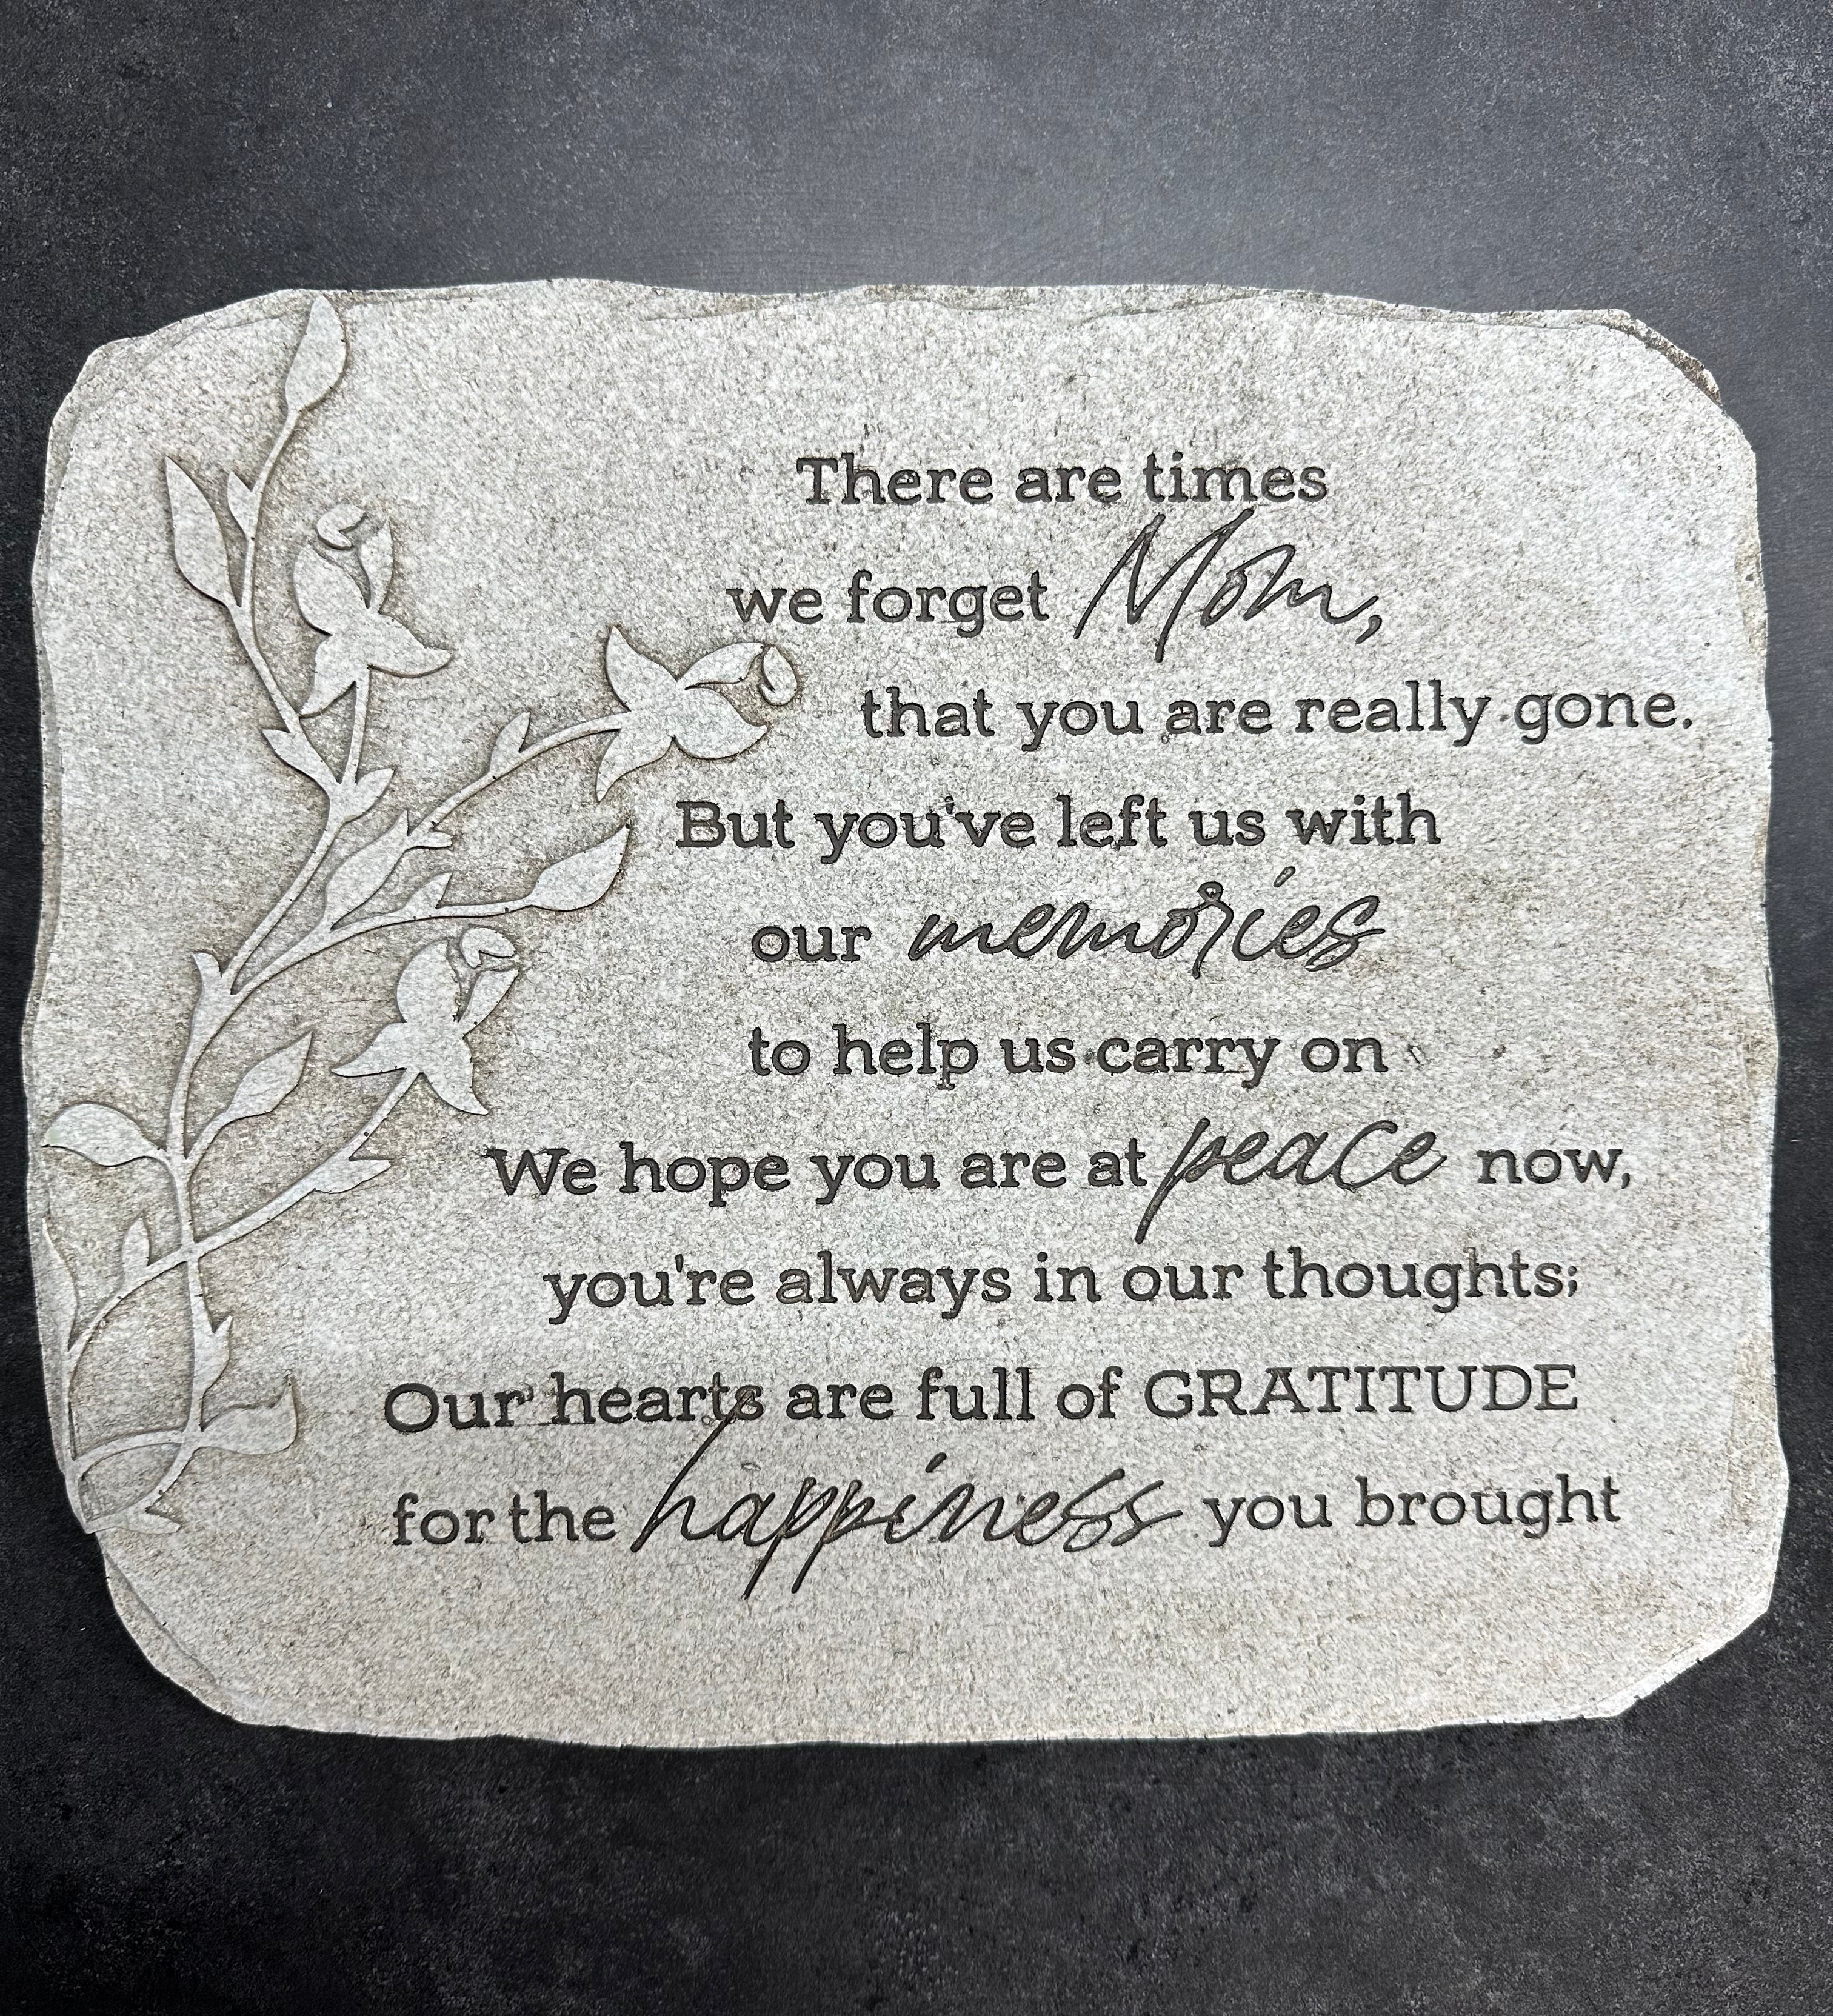 There are times
we forget Mom,
that you are really gone.
But you've left us with
our memories
to help us carry on
We hope you are at peace now,
you're always in our thoughts;
Our hearts are full of GRATITUDE
for the happiness you brought